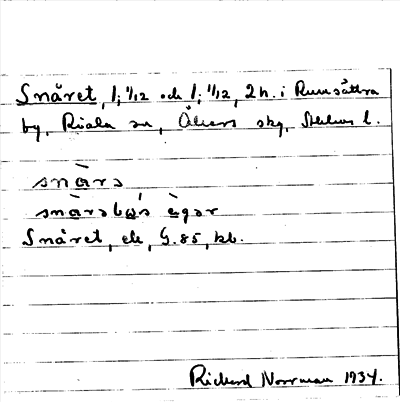 Snåret, 1; 1/12 och 1; 1/12, 2 h. i Rumsättra
by, Riala sn, Åkers skg, Sthlms l.
snàrə
snàrəbώ̨s ègər
Snåret, ek, G. 85, kb.
Richard Norrman 1934.